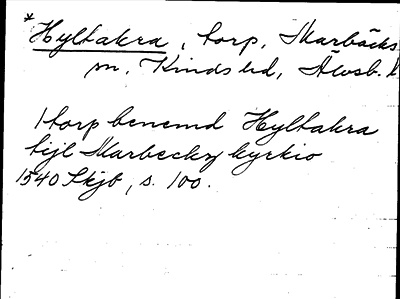 *Hyltakra, torp, Marbäcks
m, Kinds hd, Älvsb. l
1 torp benemd Hyltakra
tijl Marbecky kyrkio
1540 Skjb, s. 100.